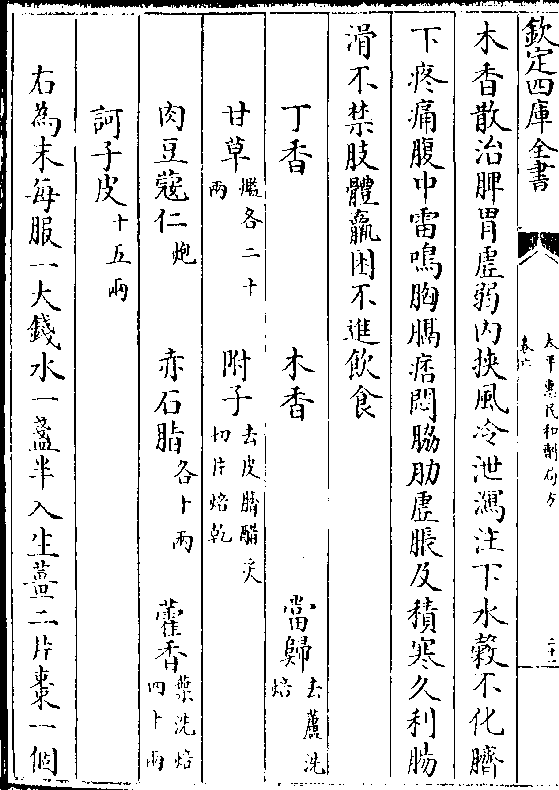 欽定四庫全書
太平惠民和劑局方
卷六
木香散治脾胃虛弱内挾風冷泄瀉注下水糓不化臍
下疼痛腹中雷鳴胸膈痞悶脇肋虛脹及積寒久利腸
滑不禁肢體羸困不進飲食
丁香 木香 當歸去蘆洗焙
甘草爁各二十兩 附子去皮臍醋炙切片焙乾
肉豆蔻仁炮 赤石脂各十兩 藿香葉洗焙四十兩
訶子皮十五兩
右為末每服一大錢水一盞半入生薑二片棗一個